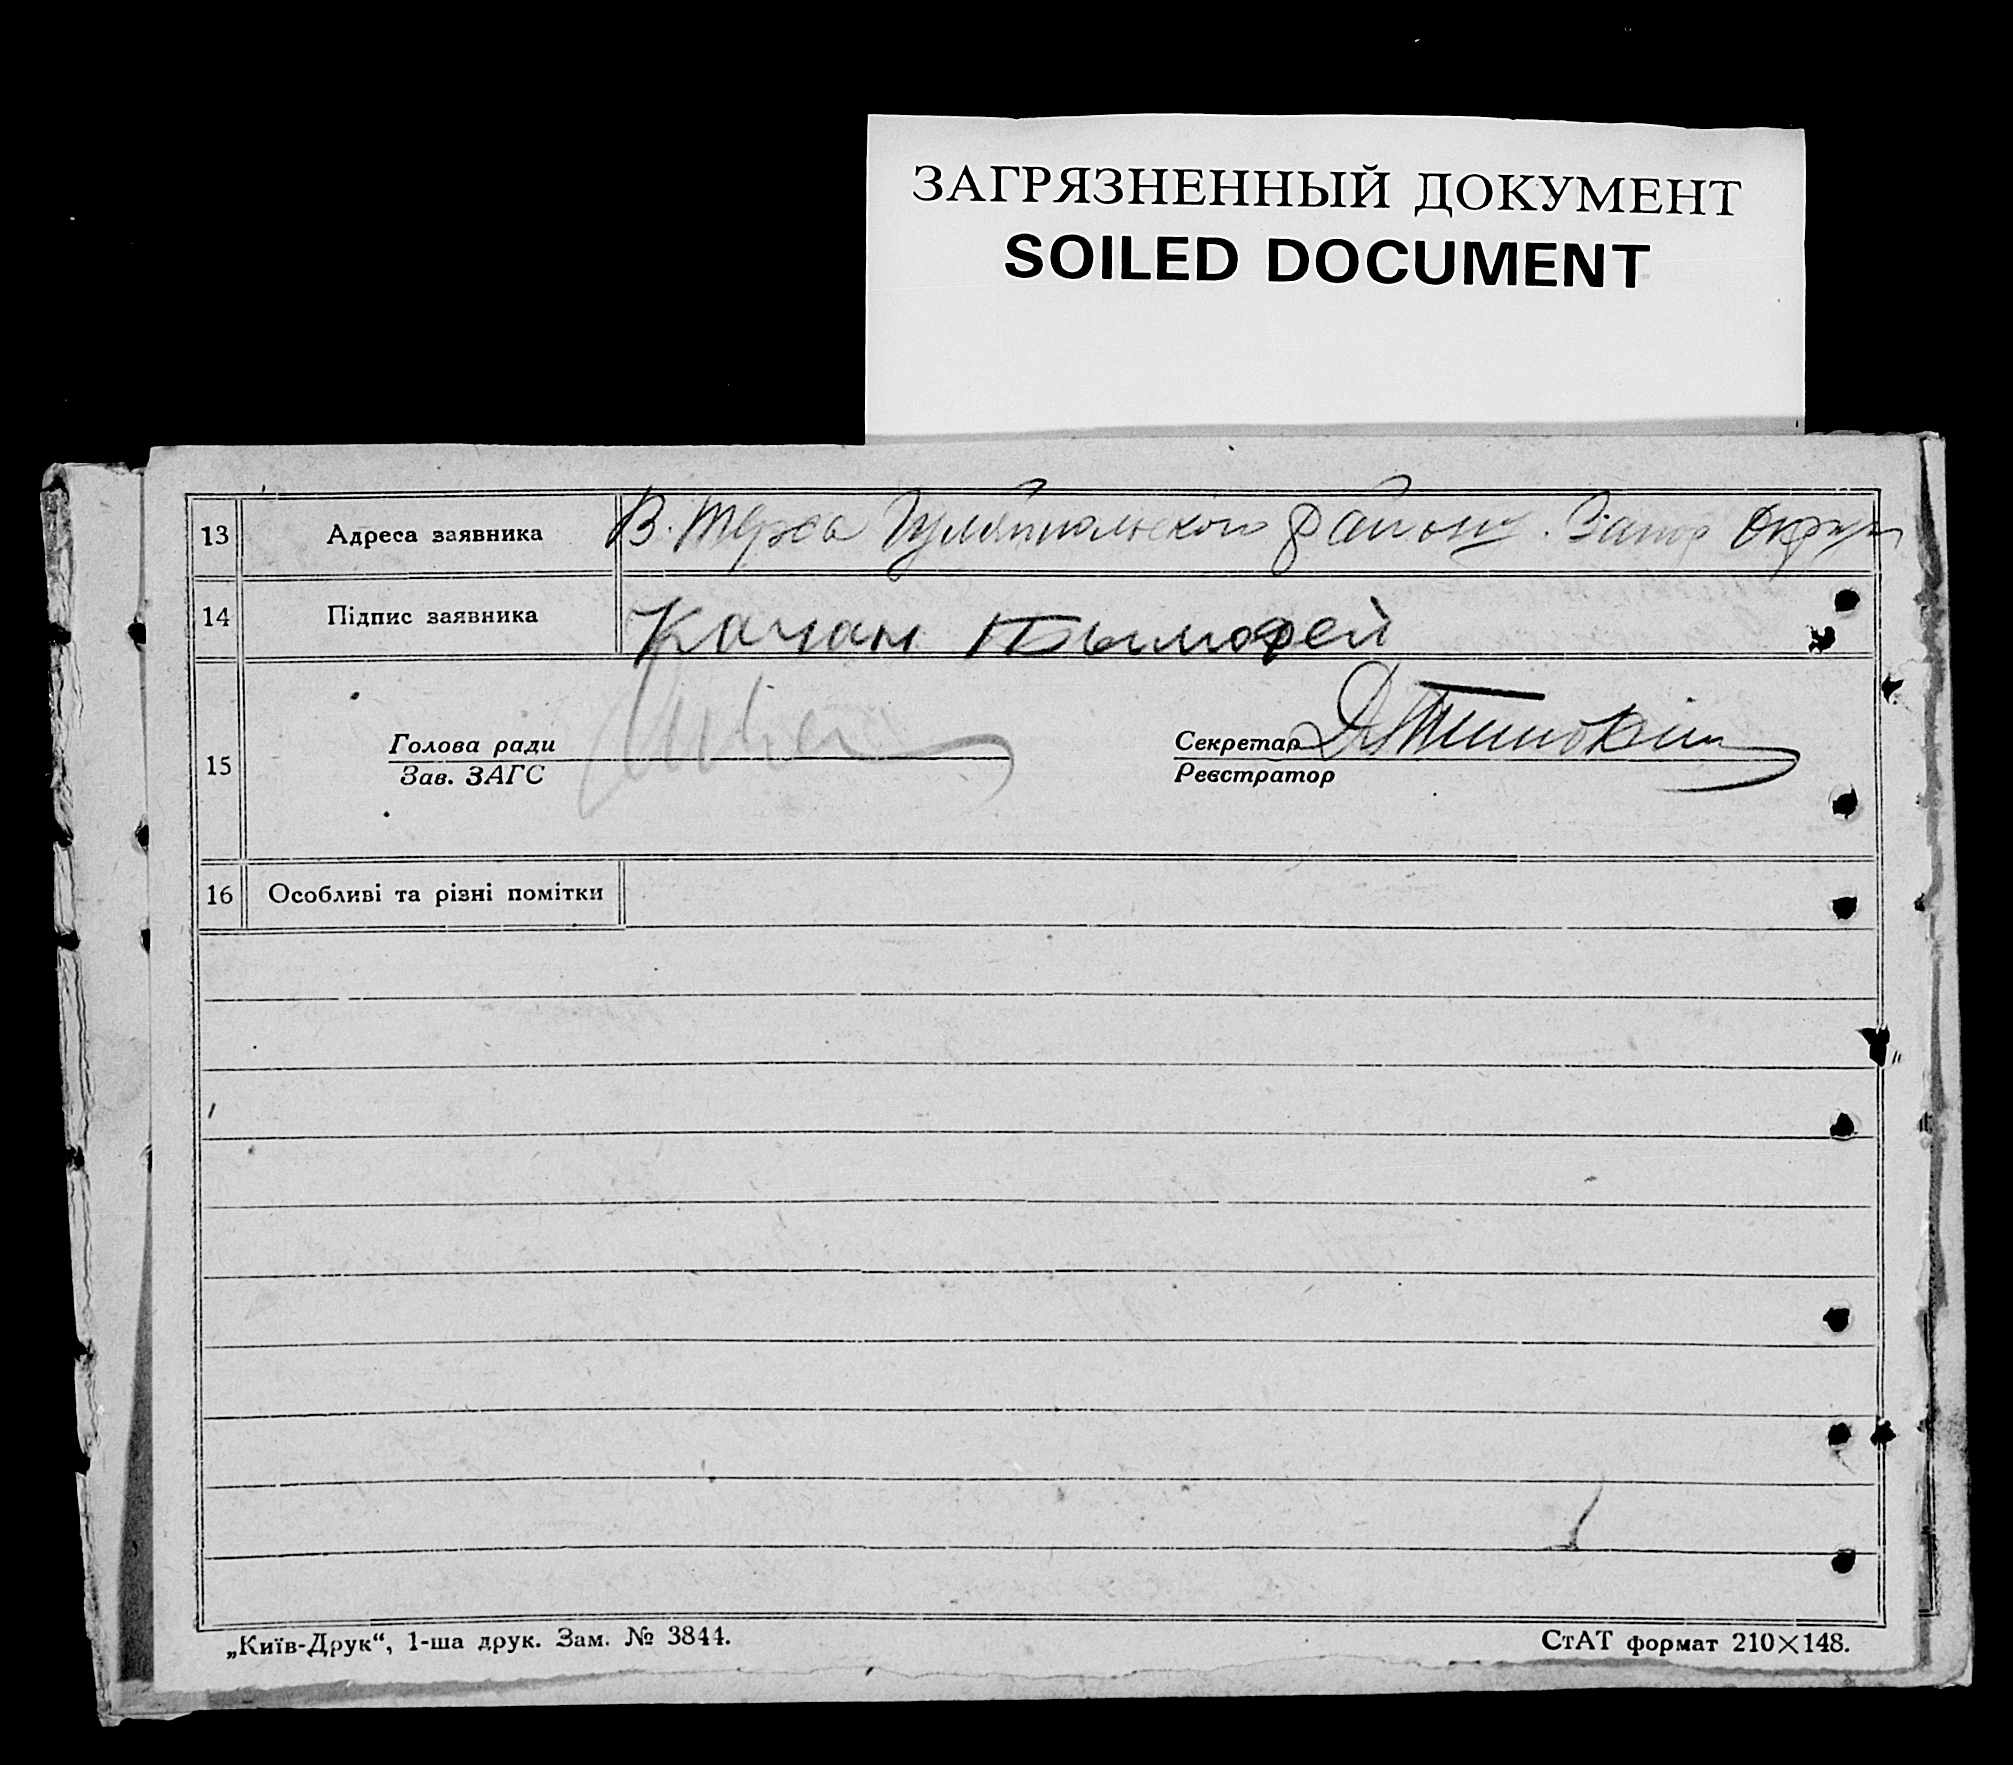 ЗАГРЯЗНЕННЫЙ ДОКУМЕНТ
SOILED DOCUMENT
13 Адреса заявника В. Терса Гуляйпольского району. Запор Округи
14 Підпис заявника Качан Тымофей
15
Голова ради
Зав. ЗАГС
Секретар
Реєстратор
16 Особливі та різні помітки
„Київ-Друк“, 1-ша друк. Зам. № 3844.
СтАТ формат 210×148.